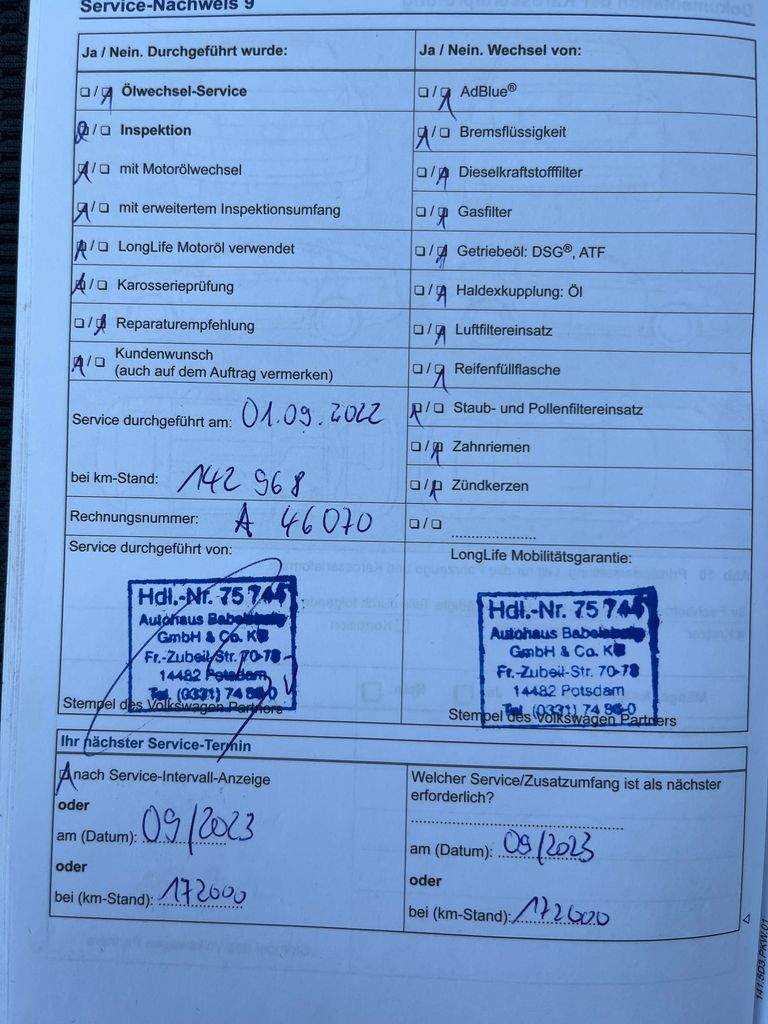 Service-Nachweis 9
Ja / Nein. Durchgeführt wurde:
Ölwechsel-Service
Inspektion
mit Motorölwechsel
mit erweitertem Inspektionsumfang
LongLife Motoröl verwendet
Karosserieprüfung
Reparaturempfehlung
Kundenwunsch
(auch auf dem Auftrag vermerken)
Service durchgeführt am: 01.09.2022
bei km-Stand: 142 968
Rechnungsnummer: A 46070
Service durchgeführt von:
Hdl.-Nr. 75 744
Autohaus Babelsberg
GmbH & Co. KG
Fr.-Zubeil-Str. 70-78
14482 Potsdam
Tel. (0331) 74 86-0
Stempel des Volkswagen Partners
Ja / Nein. Wechsel von:
AdBlue®
Bremsflüssigkeit
Dieselkraftstofffilter
Gasfilter
Getriebeöl: DSG®, ATF
Haldexkupplung: Öl
Luftfiltereinsatz
Reifenfüllflasche
Staub- und Pollenfiltereinsatz
Zahnriemen
Zündkerzen
LongLife Mobilitätsgarantie:
Hdl.-Nr. 75 744
Autohaus Babelsberg
GmbH & Co. KG
Fr.-Zubeil-Str. 70-78
14482 Potsdam
Tel. (0331) 74 86-0
Stempel des Volkswagen Partners
Ihr nächster Service-Termin
nach Service-Intervall-Anzeige
oder
am (Datum): 09/2023
oder
bei (km-Stand): 172000
Welcher Service/Zusatzumfang ist als nächster
erforderlich?
am (Datum): 09/2023
oder
bei (km-Stand): 172000
141.5D3.PKW.01